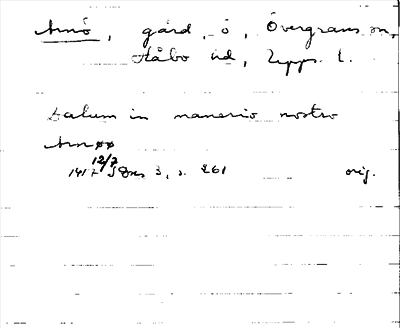 Arnö, gård, ö, Övergrans sn,
Håbo hd, Upps. l.
Datum in manerio nostro
Arnøø
12/7
1417 SDns 3, s. 261 orig.